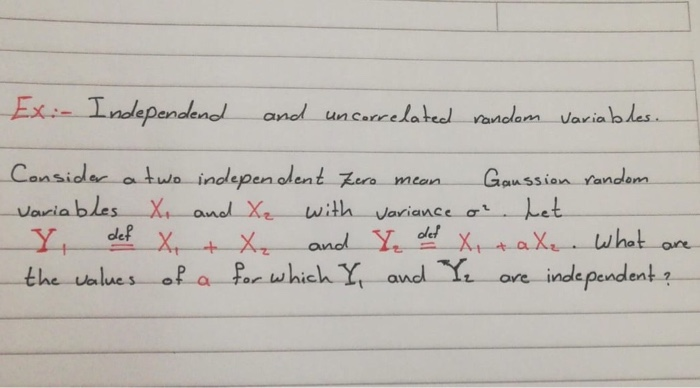 Ex:- Independend and uncorrelated random variables.
Consider a two independent Zero mean Gaussian random
variables X₁ and X₂ with variance σ². Let
Y₁ def= X₁ + X₂ and Y₂ def= X₁ + aX₂. What are
the values of a for which Y₁ and Y₂ are independent?